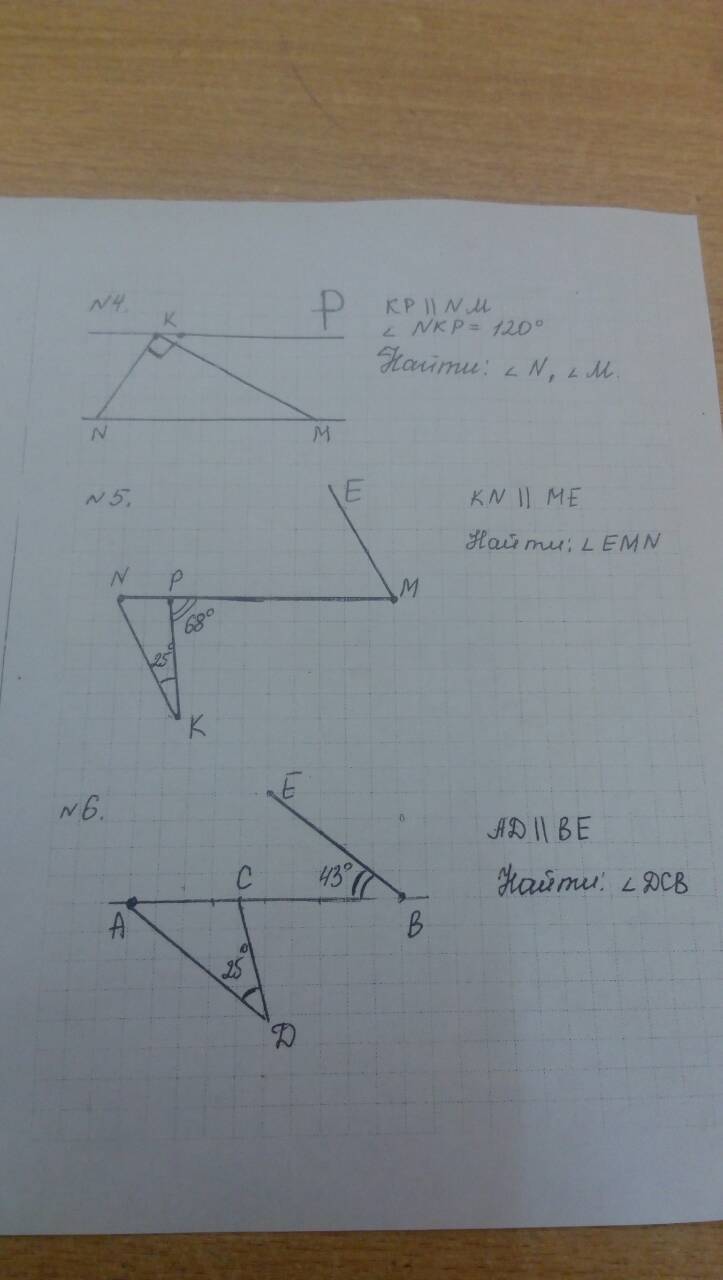 N4.
K
P
KP || NM
∠ NKP = 120°
Найти: ∠ N, ∠ M.
N
M
N5.
E
KN || ME
Найти: ∠ EMN
N
P
M
68°
25°
K
N6.
E
AD || BE
43°
Найти: ∠ DCB
C
A
B
25°
D